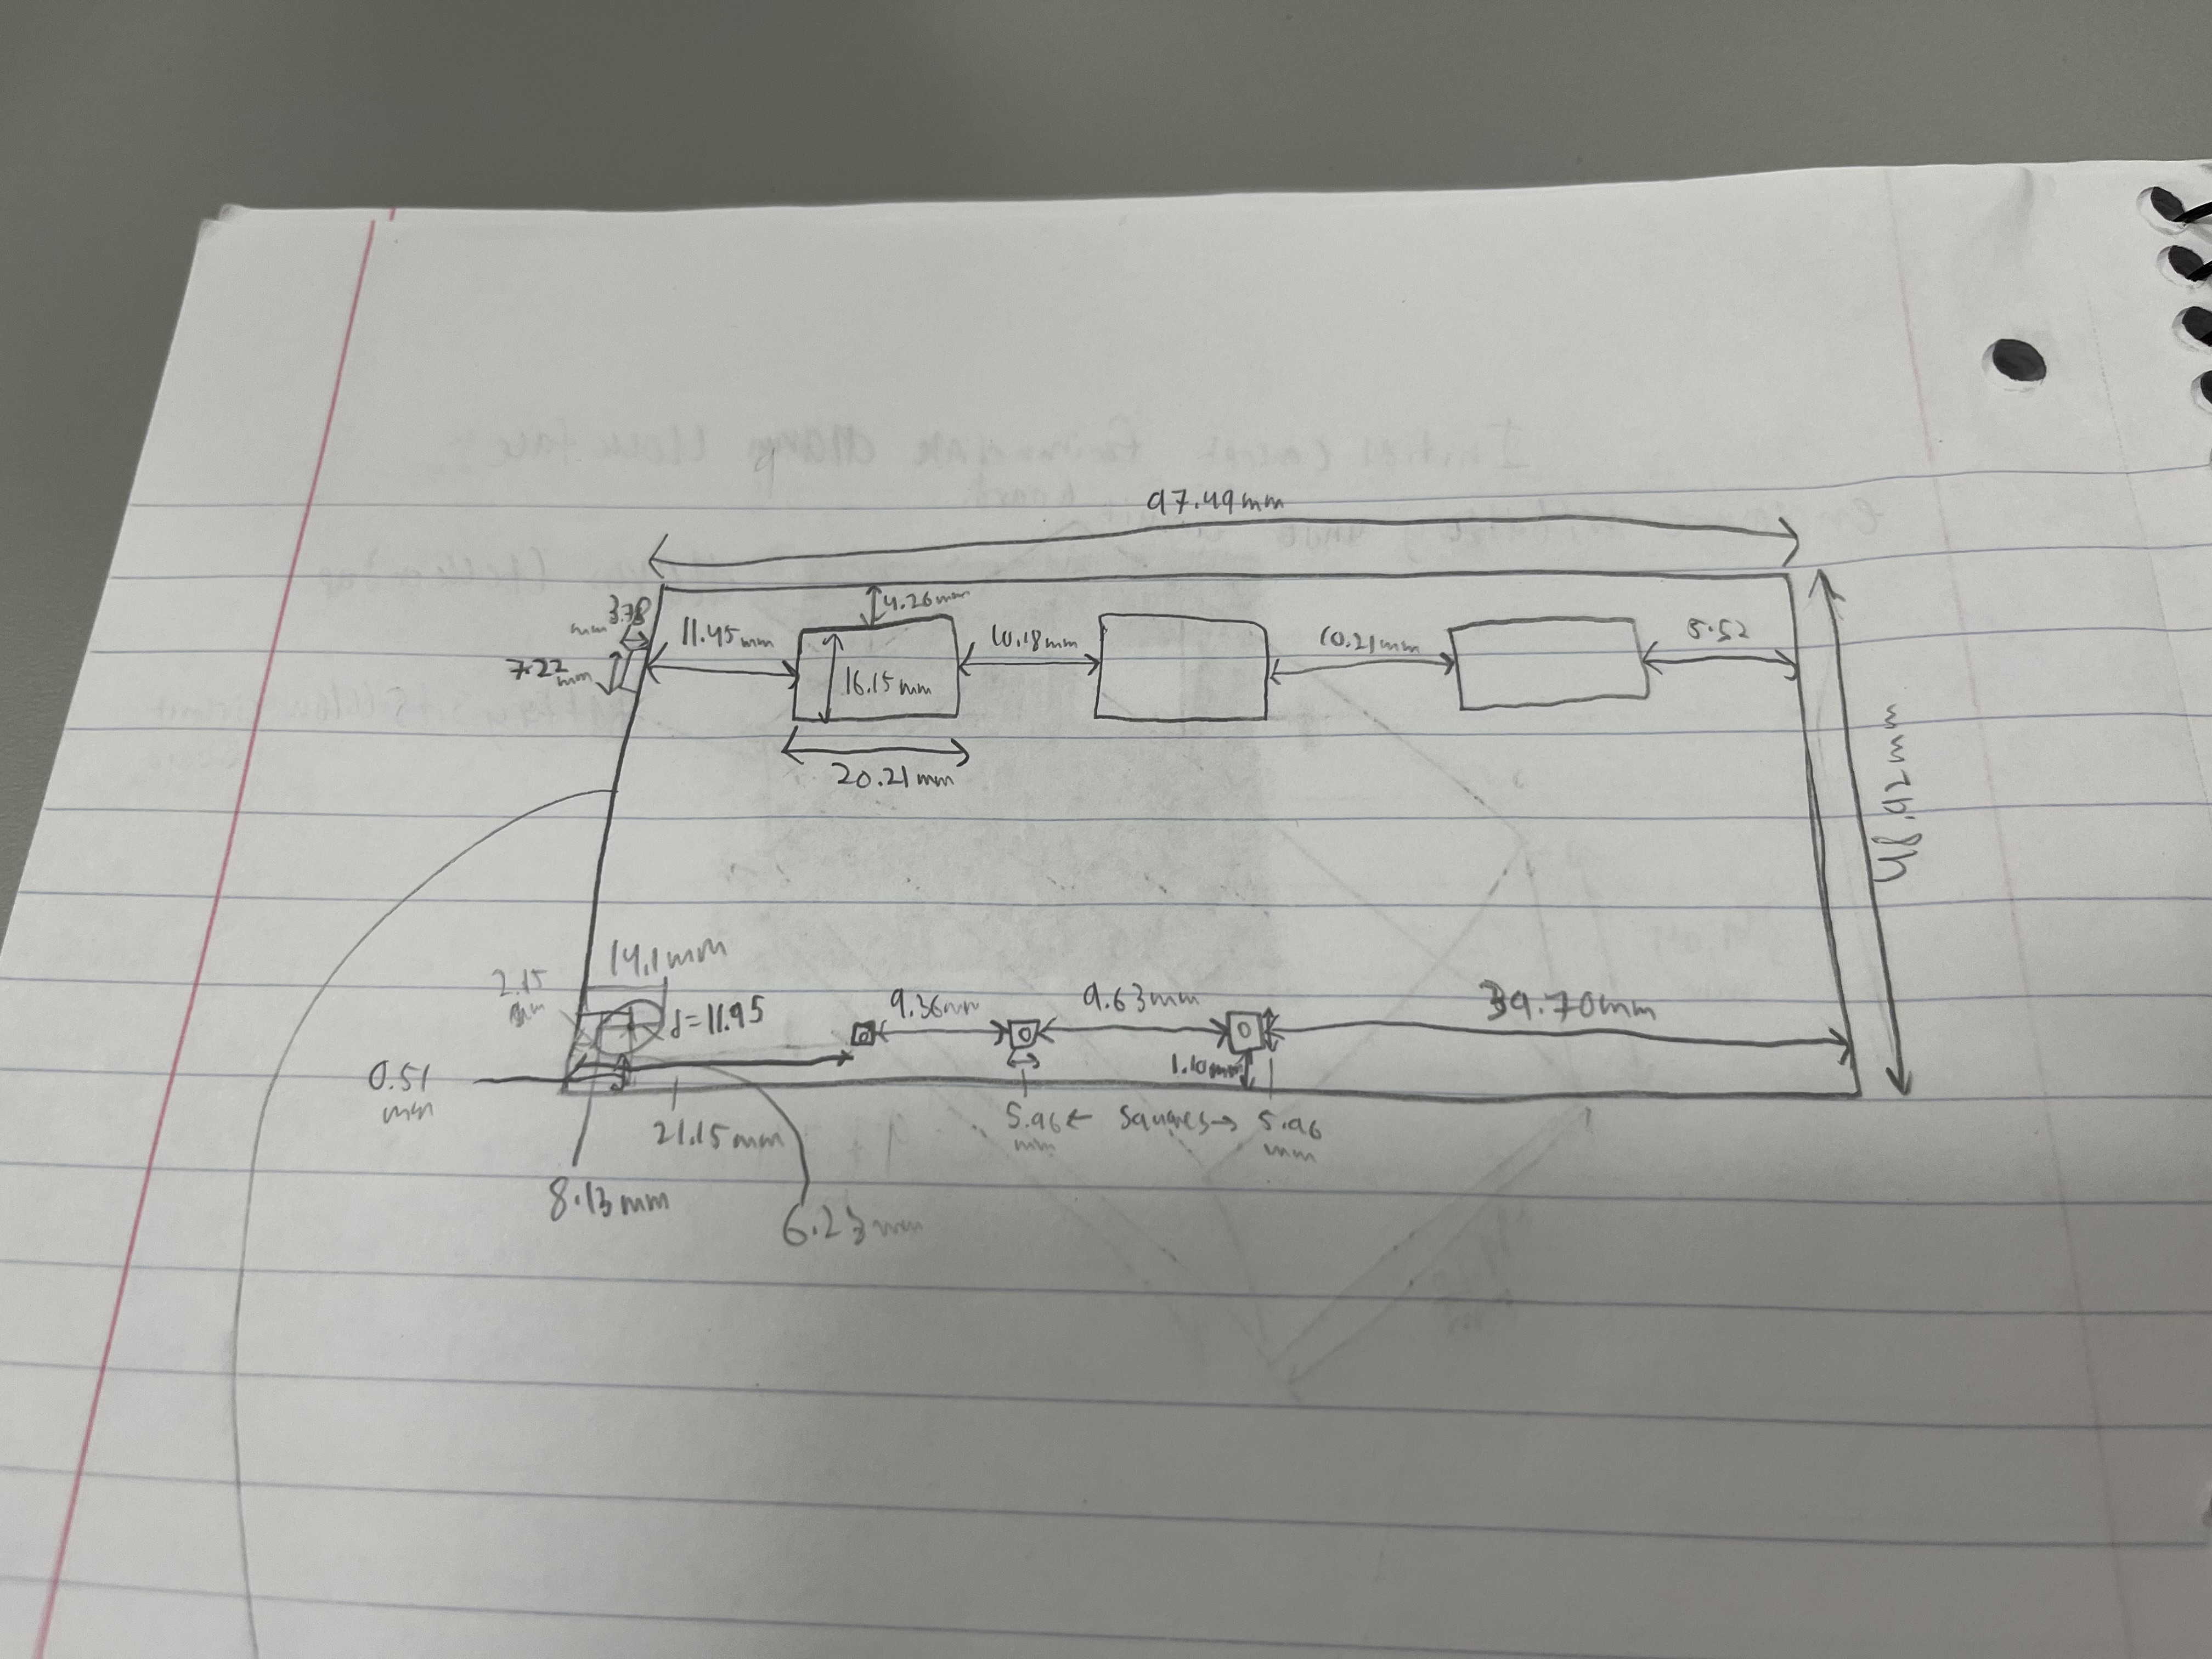 97.49mm
4.26mm
3.78
mm
11.45mm
10.18mm
10.21mm
8.52
7.22
mm
16.15mm
20.21mm
48.92mm
14.1mm
2.15
mm
d=11.95
9.36mm
9.63mm
39.70mm
0.51
mm
1.10mm
21.15mm
5.96 ← Squares → 5.96
mm mm
8.13mm
6.23mm